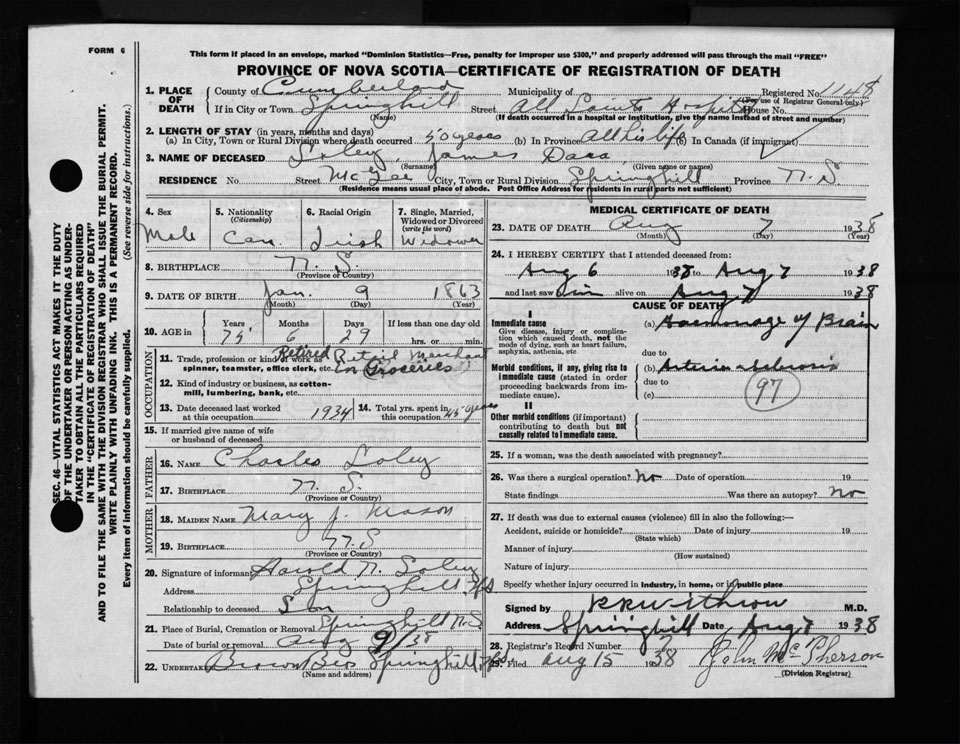 FORM 6
This form if placed in an envelope, marked "Dominion Statistics—Free, penalty for improper use $300," and properly addressed will pass through the mail "FREE"
PROVINCE OF NOVA SCOTIA—CERTIFICATE OF REGISTRATION OF DEATH
SEC. 46—VITAL STATISTICS ACT MAKES IT THE DUTY
OF THE UNDERTAKER OR PERSON ACTING AS UNDER-
TAKER TO OBTAIN ALL THE PARTICULARS REQUIRED
IN THE "CERTIFICATE OF REGISTRATION OF DEATH"
AND TO FILE THE SAME WITH THE DIVISION REGISTRAR WHO SHALL ISSUE THE BURIAL PERMIT.
WRITE PLAINLY WITH UNFADING INK. THIS IS A PERMANENT RECORD.
Every item of information should be carefully supplied. (See reverse side for instructions.)
1. PLACE OF DEATH County of Cumberland Municipality of Registered No. 1148
(For use of Registrar General only)
If in City or Town Springhill Street All Saints Hospital House No.
(Name) (If death occurred in a hospital or institution, give the name instead of street and number)
2. LENGTH OF STAY (in years, months and days)
(a) In City, Town or Rural Division where death occurred 50 years (b) In Province All his life (c) In Canada (if immigrant)
3. NAME OF DECEASED Soley, James Daca
(Surname) (Given name or names)
RESIDENCE No. Street McGee City, Town or Rural Division Springhill Province N.S.
(Residence means usual place of abode. Post Office Address for residents in rural parts not sufficient)
4. Sex Male
5. Nationality (Citizenship) Can
6. Racial Origin Irish
7. Single, Married, Widowed or Divorced (write the word) Widower
8. BIRTHPLACE N.S.
(Province or Country)
9. DATE OF BIRTH Jan. 9 1863
(Month) (Day) (Year)
10. AGE in Years Months Days If less than one day old
75 6 29 hrs. or min.
OCCUPATION
11. Trade, profession or kind of work as spinner, teamster, office clerk, etc. Retired Retail Merchant
in Groceries
12. Kind of industry or business, as cotton-mill, lumbering, bank, etc.
13. Date deceased last worked at this occupation 1934
14. Total yrs. spent in this occupation 45 years
15. If married give name of wife or husband of deceased
FATHER
16. NAME Charles Soley
17. BIRTHPLACE N.S.
(Province or Country)
MOTHER
18. MAIDEN NAME Mary J. Mason
19. BIRTHPLACE N.S
(Province or Country)
20. Signature of informant Harold N. Soley
Address Springhill, N.S
Relationship to deceased Son
21. Place of Burial, Cremation or Removal Springhill N.S
Date of burial or removal Aug 9/38
22. UNDERTAKER Brown Bros Springhill, N.S
(Name and address)
MEDICAL CERTIFICATE OF DEATH
23. DATE OF DEATH Aug 7 1938
(Month) (Day) (Year)
24. I HEREBY CERTIFY that I attended deceased from:
Aug 6 1938 to Aug 7 1938
and last saw him alive on Aug 7 1938
CAUSE OF DEATH
I
Immediate cause (a) Haemorrhage of Brain
Give disease, injury or complication which caused death, not the mode of dying, such as heart failure, asphyxia, asthenia, etc
due to
Morbid conditions, if any, giving rise to immediate cause (stated in order proceeding backwards from immediate cause). (b) Arterio sclerosis
due to
(c)
97
II
Other morbid conditions (if important) contributing to death but not causally related to immediate cause.
25. If a woman, was the death associated with pregnancy?
26. Was there a surgical operation? No Date of operation 19
State findings Was there an autopsy? No
27. If death was due to external causes (violence) fill in also the following:—
Accident, suicide or homicide? Date of injury 19
(State which)
Manner of injury
(How sustained)
Nature of injury
Specify whether injury occurred in industry, in home, or in public place
Signed by R R Withrow M.D.
Address Springhill Date Aug 7 1938
28. Registrar's Record Number
29. Filed Aug 15 1938 John McPherson
(Division Registrar)